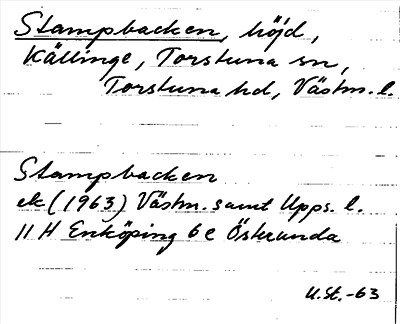 Stampbacken, höjd,
Källinge, Torstuna sn,
Torstuna hd, Västm. l.
Stampbacken
ek (1963) Västm. samt Upps. l.
11 H Enköping 6 e Österunda
U.St.-63